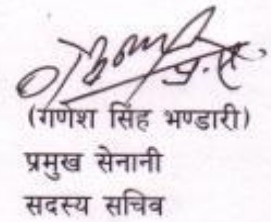 (गणेश सिंह भण्डारी)
प्रमुख सेनानी
सदस्य सचिव